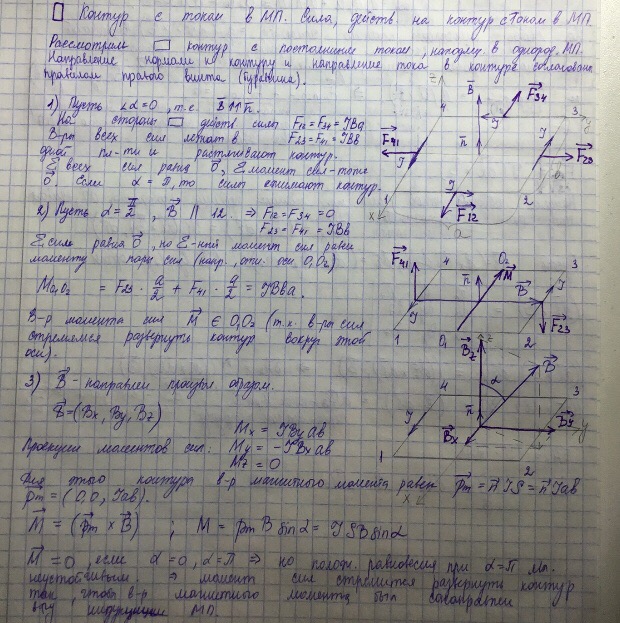 ▯ Контур с током в МП. Сила, действ на контур с током в МП.
Рассмотрим ▯ контур с постоянным током, находящ. в однород. МП.
Направление нормали к контуру и направление тока в контуре согласован
правилом правого винта (буравчика).
1) Пусть ∠α=0, т.е. B⃗↑↑n⃗.
На стороны ▯ действ силы F12=F34=IBa
F23=F41=IBb
В-ры всех сил лежат в
одной пл-ти и растягивают контур.
Σ всех сил равна 0⃗, Σ момент сил тоже
0⃗. Если α=π, то силы сжимают контур.
2) Пусть α=π/2, B⃗ ∥ 12. ⇒ F12=F34=0
F23=F41=IBb
Σ сил равна 0⃗, но Σ-ный момент сил равен
моменту пары сил (напр., отн. оси O1O2)
MO1O2 = F23·a/2 + F41·a/2 = IBba.
В-р момента сил M⃗ ∈ O1O2 (т.к. в-ры сил
стремятся развернуть контур вокруг этой
оси).
3) B⃗ - направлен произв образом.
B⃗=(Bx, By, Bz)
Mx = -IByab
Проекции моментов сил. My = -IBxab
Mz = 0
Для этого контура в-р магнитного момента равен p⃗m=n⃗IS=n⃗Iab
p⃗m=(0,0,Iab).
M⃗ = (p⃗m × B⃗) ; M = pmB sinα = ISB sinα
M⃗=0, если α=0, α=π ⇒ но полож. равновесия при α=π
неустойчивым. ⇒ момент сил стремится развернуть контур
так, чтобы в-р магнитного момента был сонаправлен
в-ру индукции МП.
z
B⃗
F⃗34
4
3
y
F⃗41
I
n⃗
I
F⃗23
I
b
x
1
F⃗12
2
a
F⃗41
4
O2
3
M⃗
n⃗
B⃗
I
I
F⃗23
1
O1
2
B⃗z
z
B⃗
α
4
3
n⃗
I
B⃗x
B⃗y
y
1
2
x